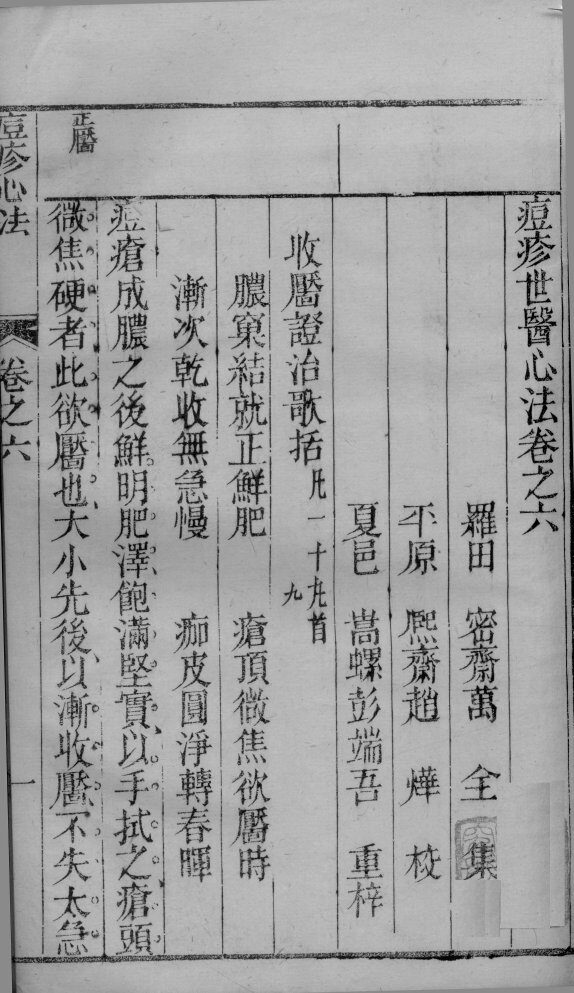 痘疹世醫心法卷之六
羅田 密齋萬 全 集
平原 熈齋趙 燁 校
夏邑 嵩螺彭端吾 重梓
收靨證治歌括凡一十九首
九
膿窠結就正鮮肥 瘡頂微焦欲靨時
漸次乾收無急慢 痂皮圓淨轉春暉
正靨
痘瘡成膿之後鮮明肥澤飽滿堅實以手拭之瘡頭
微焦硬者此欲靨也大小先後以漸收靨不失太急
痘疹心法 卷之六 一